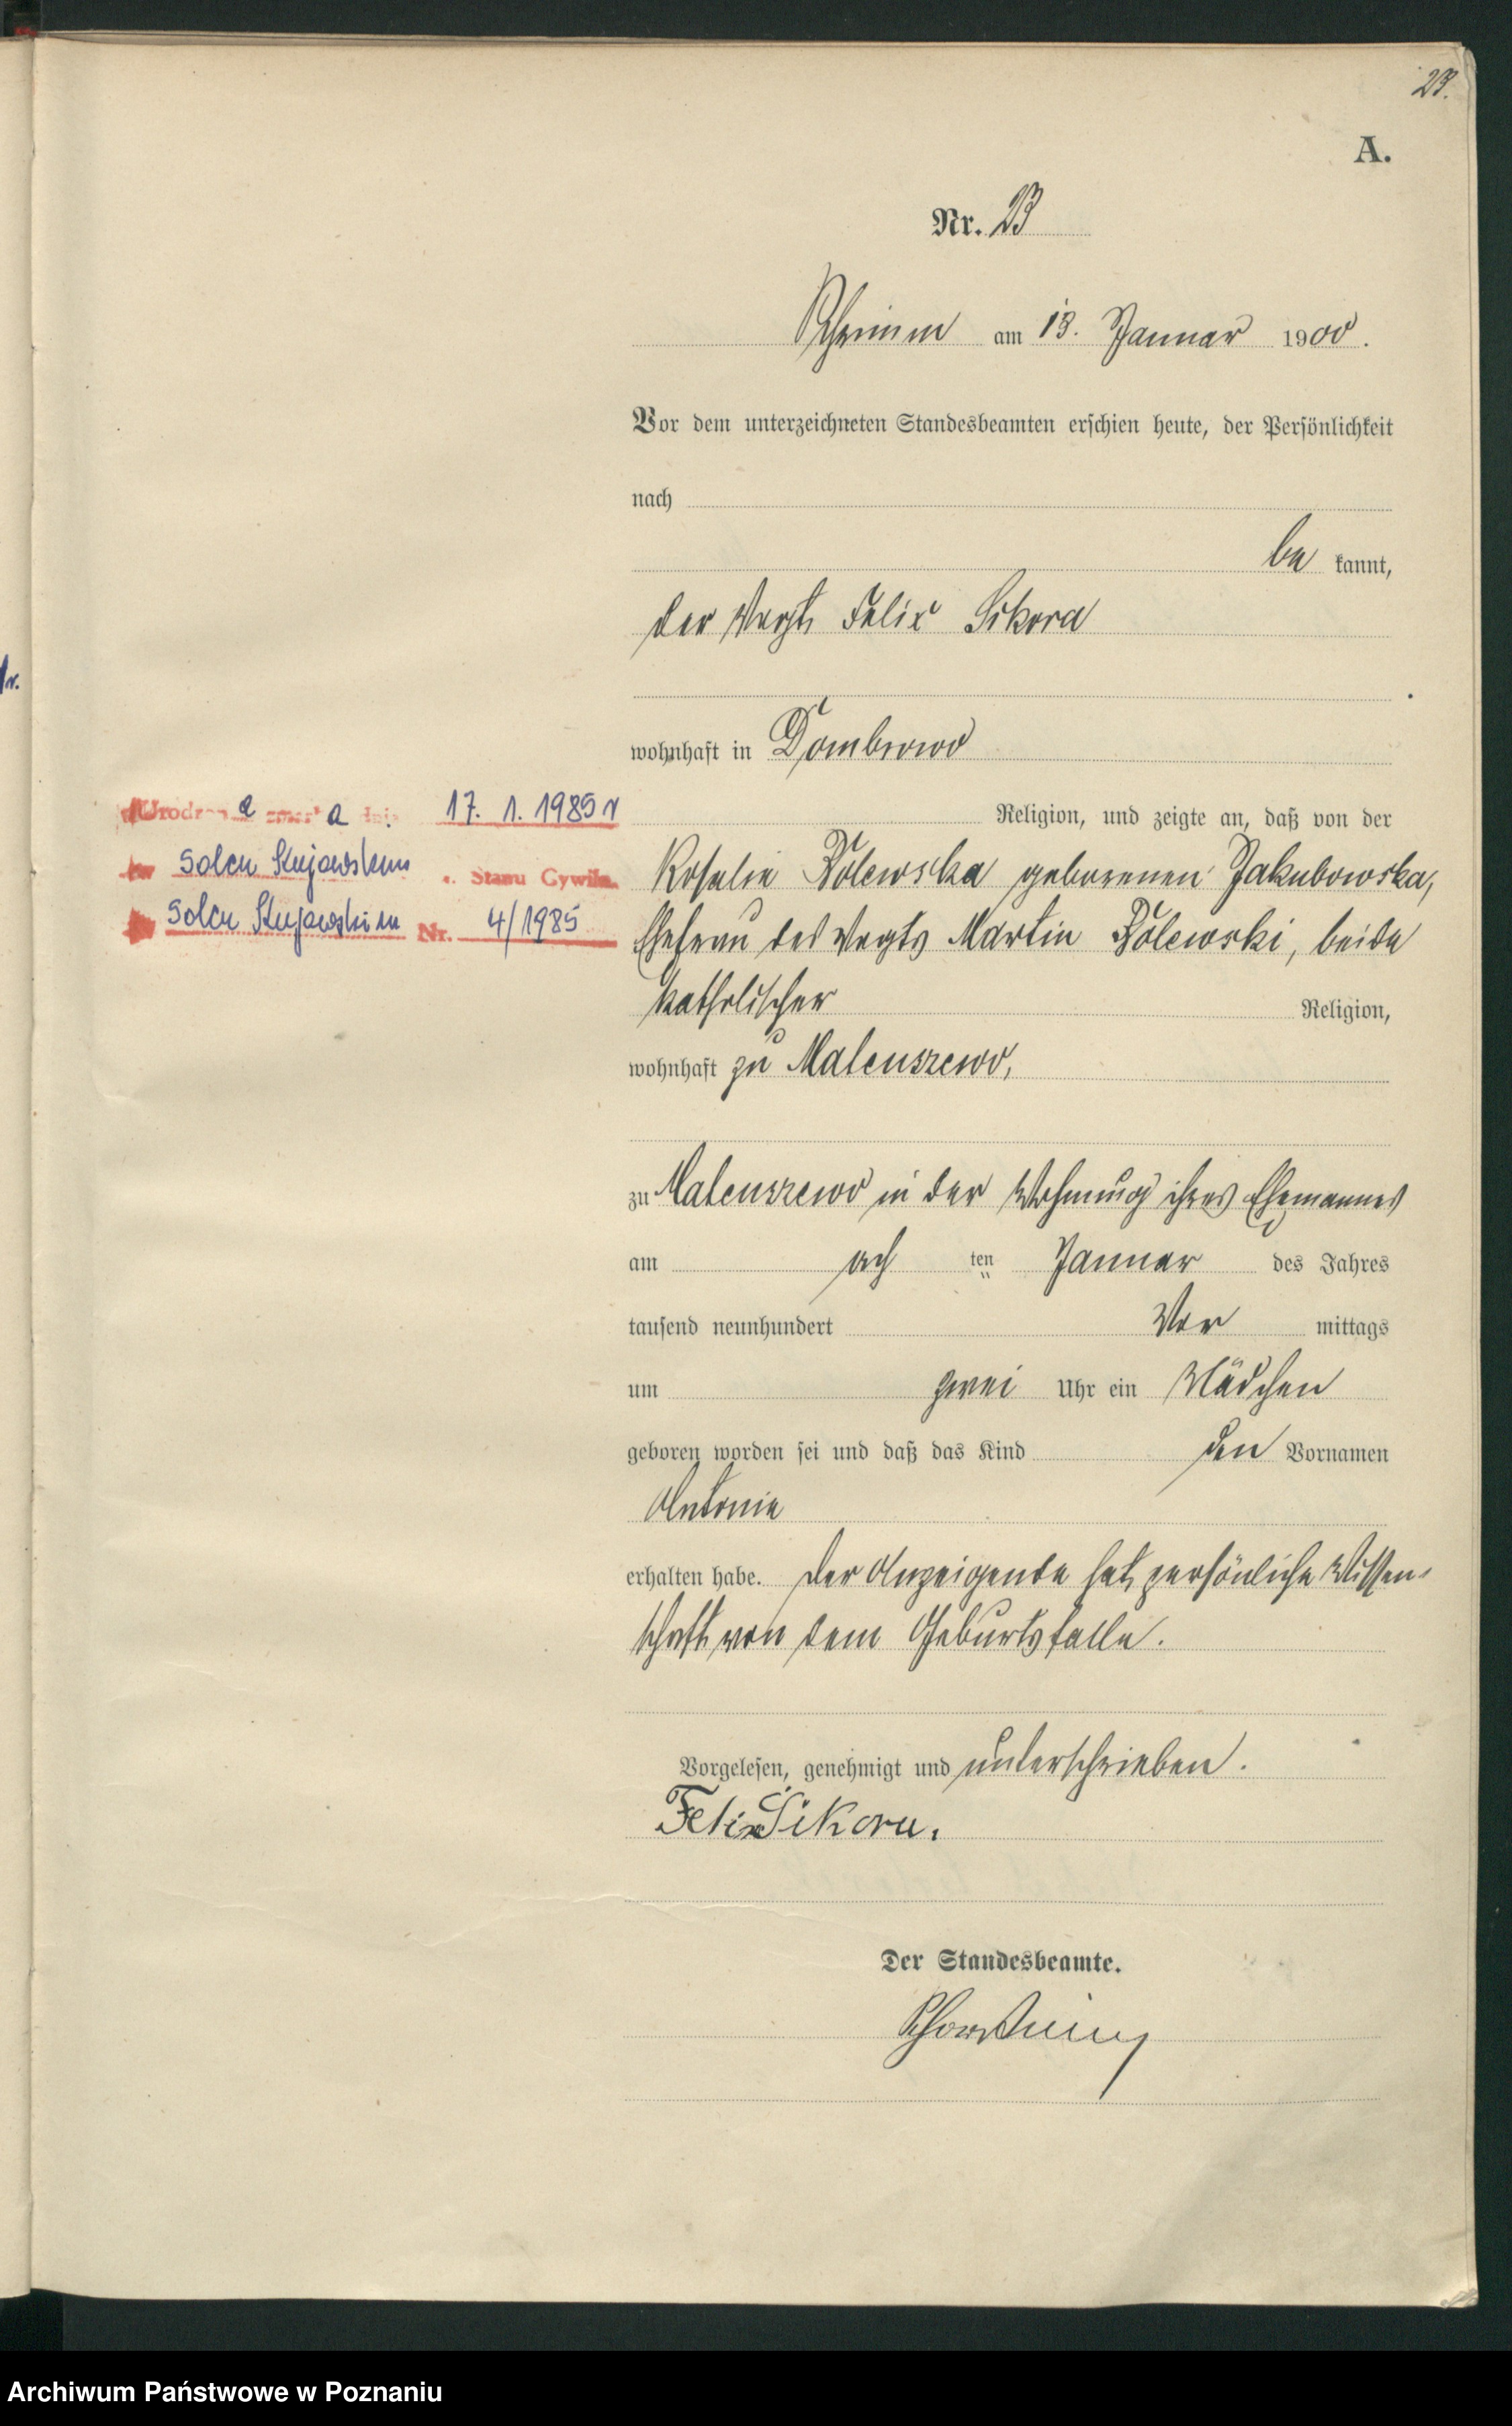 23.
A.
Nr. 23
Schrimm am 13. Januar 1900.
Vor dem unterzeichneten Standesbeamten erschien heute, der Persönlichkeit
nach
be kannt,
der Vogt Felix Sikora
wohnhaft in Dombrowo
17. 1. 1985 r
Religion, und zeigte an, daß von der
Solcu Kujawskim Stanu Cywiln.
Rosalie Kolewska geborenen Jakubowska,
Solcu Kujawskim Nr. 4/1985
Ehefrau des Vogts Martin Kolewski, beide
katholischer Religion,
wohnhaft zu Mateuszewo,
zu Mateuszewo in der Wohnung ihres Ehemannes
am ach ten Januar des Jahres
tausend neunhundert Vor mittags
um zwei Uhr ein Mädchen
geboren worden sei und daß das Kind den Vornamen
Antonie
erhalten habe. Der Anzeigende hat persönliche Wissen-
schaft von dem Geburtsfalle.
Vorgelesen, genehmigt und unterschrieben.
Felix Sikora.
Der Standesbeamte.
Archiwum Państwowe w Poznaniu